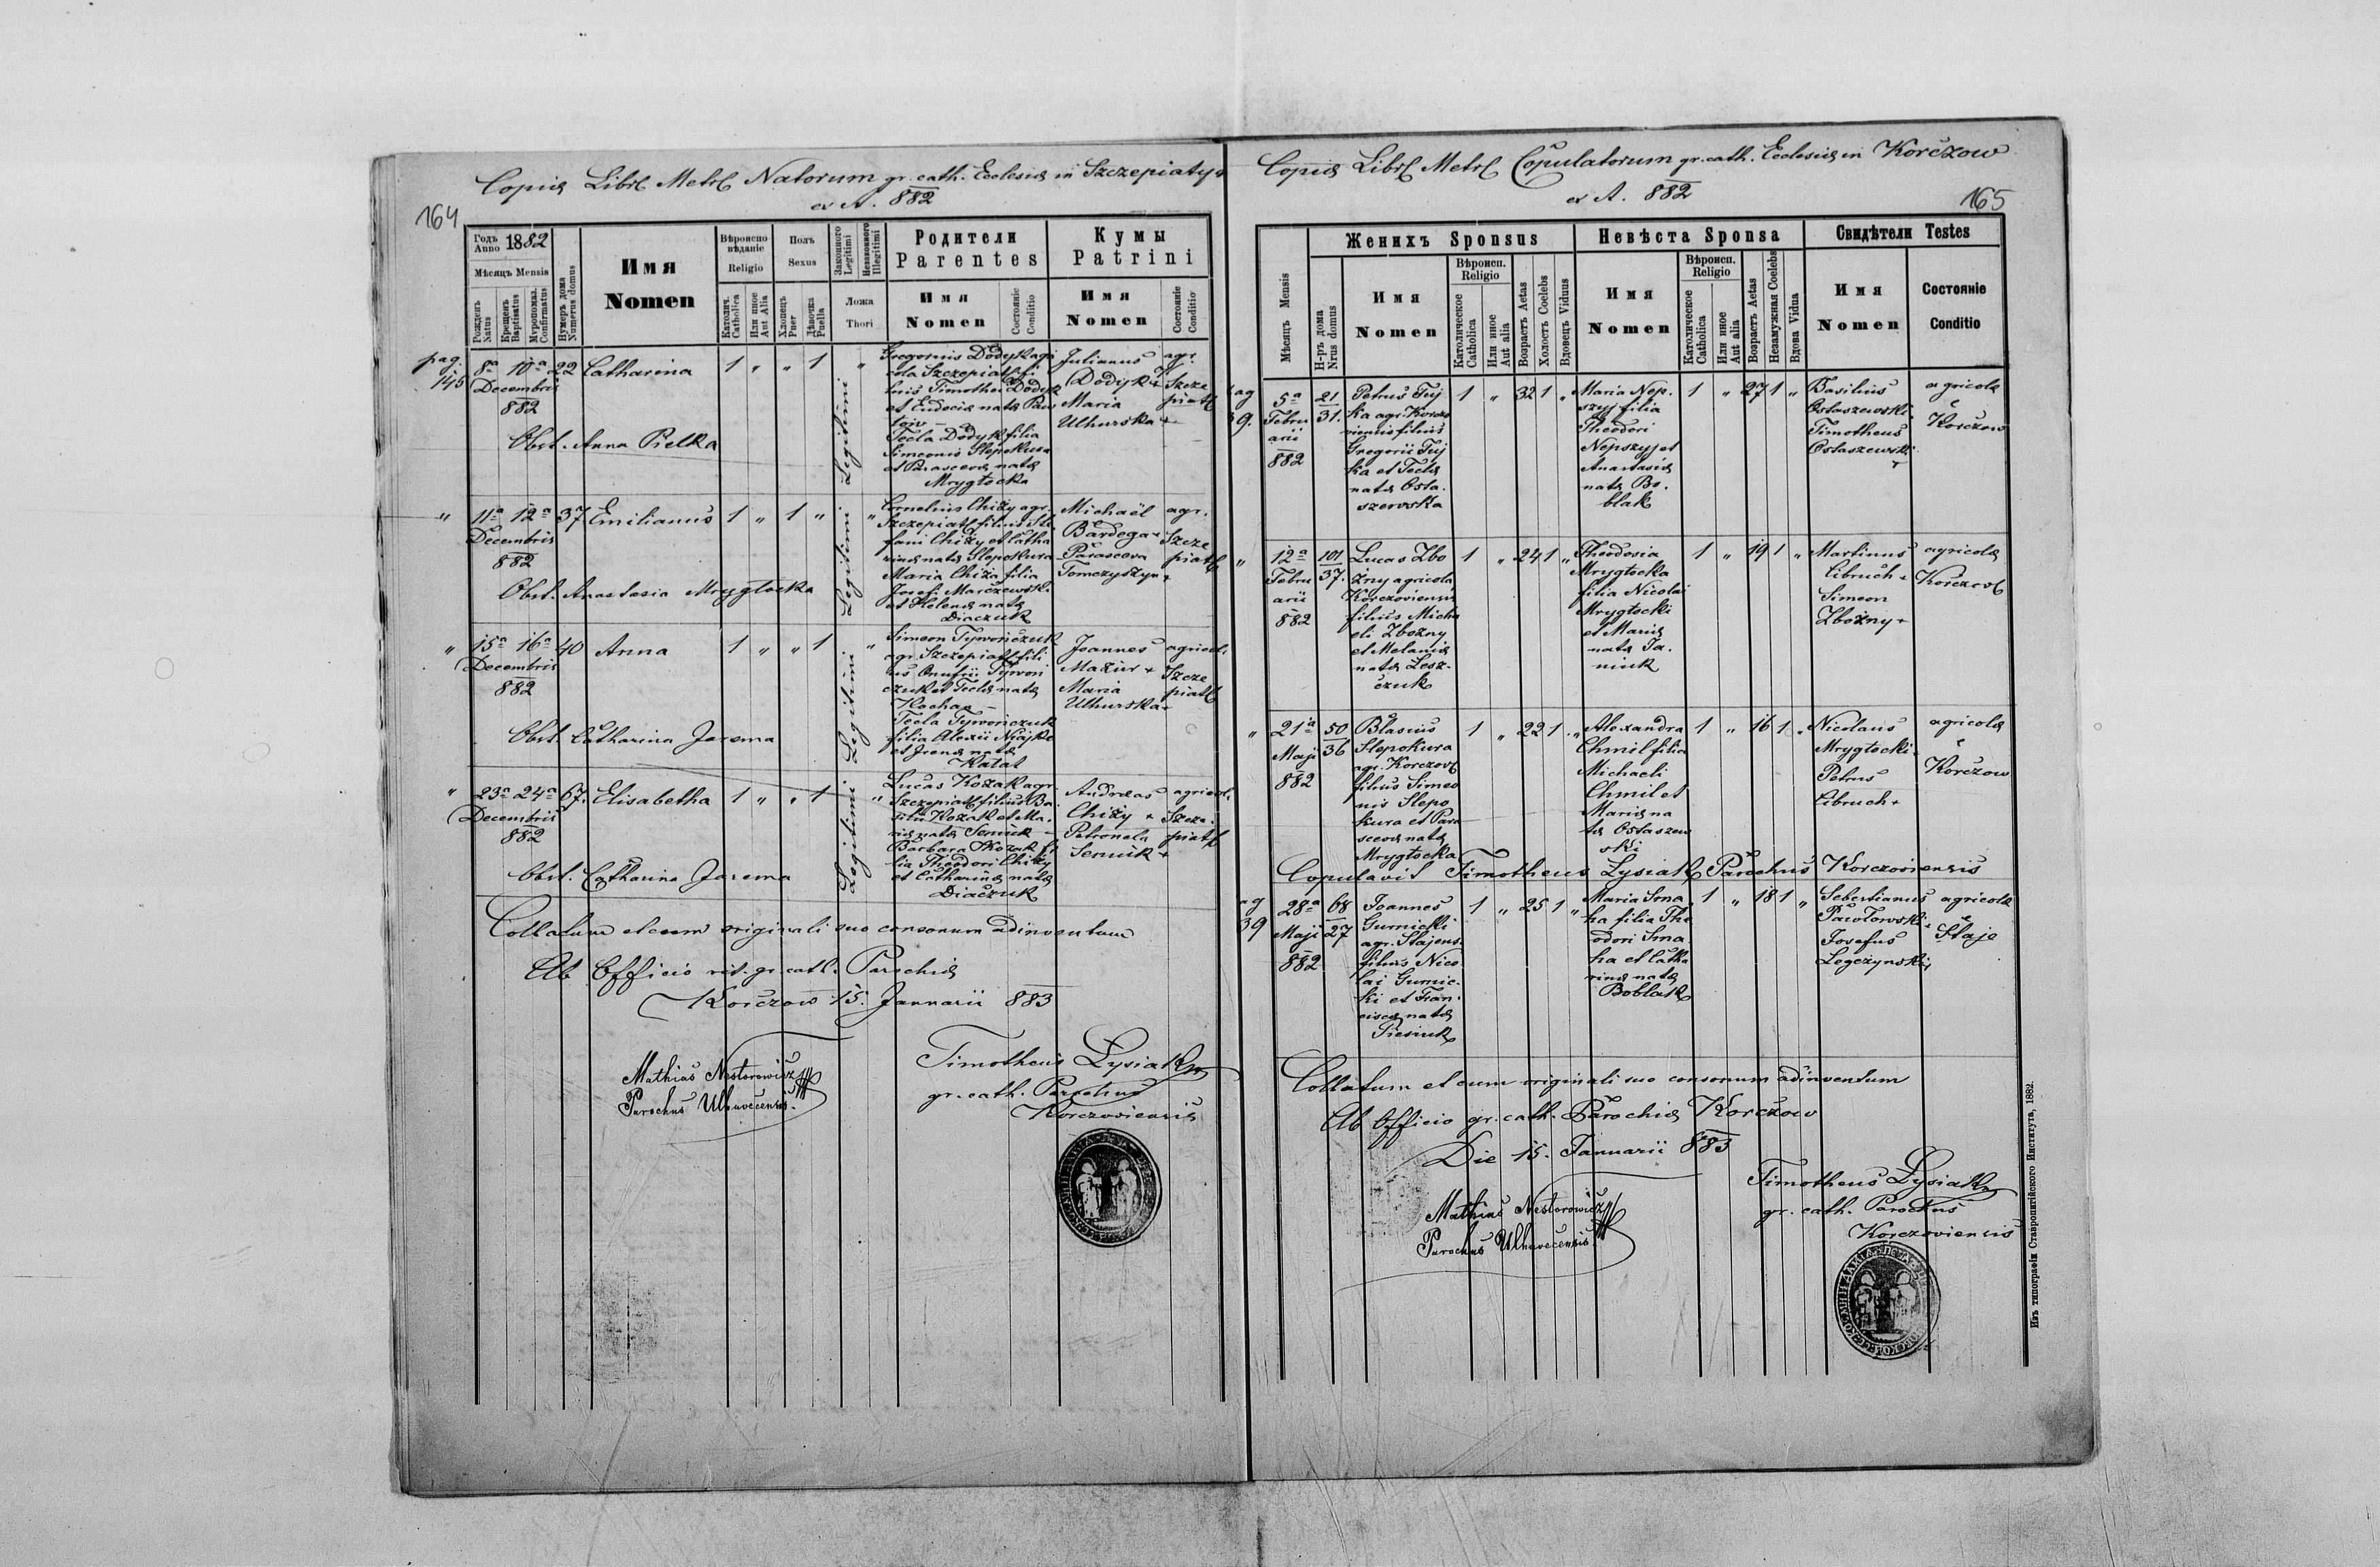 Copia Libri Metri Natorum gr. cath. Ecclesiæ in Szczepiatyn
ex A. 882
164
Годъ Anno 1882
Мѣсяцъ Mensis
Рожденъ Natus
Крещенъ Baptisatus
Мѵропомаз. Confirmatus
Нумеръ дома Numerus domus
Имя
Nomen
Вѣроисповѣданіе
Religio
Католич. Catholica
Или иное Aut Alia
Полъ
Sexus
Хлопецъ Puer
Дѣвочка Puella
Законного Legitimi
Незаконного Illegitimi
Ложа
Thori
Родители
Parentes
Имя
Nomen
Состояніе Conditio
Кумы
Patrini
Имя
Nomen
Состояніе Conditio
pag. 145
8a 10a 22 Catharina 1 " " 1 "
Decembris
882
Obst. Anna Pielka
Legitimi
Gregorius Dodyk agri
cola Szczepiat fi
lius Timothei Dodyk
et Eudociæ natæ
Tecla Dodyk filia
Simeonis Slepokura
et Parascevæ natæ
Mrygłocka
Julianus
Dodyk +
Maria
Uhurska +
agr.
Szcze
piat
" 11a 12a 37 Emilianus 1 " 1 " "
Decembris
882
Obst. Anastasia Mrygłocka
Legitimi
Cornelius Chiży agr.
Szczepiat filius Ste
fani Chiży et Catha
rinæ natæ Slepokura
Maria Chiża filia
Josefi Marczewski
et Helenæ natæ
Diaczuk
Michaël
Bardega +
Parasceva
Tomczyszyn +
agr.
Szcze
piat
" 15a 16a 40 Anna 1 " " 1 "
Decembris
882
Obst. Catharina Jarema
Legitimi
Simeon Tywończuk
agr. Szczepiat fili
us Onufrii Tywon
czuk et Teclæ natæ
Kochan
Tecla Tywończuk
filia Alexii
et Irenæ natæ
Katal
Joannes
Mazur +
Maria
Uhurska +
agricol.
Szcze
piat
" 23a 24a 67. Elisabetha 1 " " 1 "
Decembris
882
Obst. Catharina Jarema
Legitimi
Lucas Kozak agr.
Szczepiat filius Ba
silii Kozak et Ma.
riæ natæ Seniuk
Barbara Kozak fi
lia Theodori Chiży
et Catharinæ natæ
Diaczuk
Andreas
Chiży +
Petronela
Seniuk +
agricol.
Szcze.
piat
Collatum et cum originali suo consonum adinventum
Ab Officio rit. gr. cath. Parochiæ
Korczow 15. Januarii 883
Mathias Nestorowicz
Parochus Uhnovecensis
Timotheus Lysiak
gr. cath. Parochus
Korczoviensis
Copia Libri Metri Copulatorum gr. cath. Ecclesiæ in Korczow
ex A. 882
165
Мѣсяцъ Mensis
Н-ръ дома Nrus domus
Женихъ Sponsus
Имя
Nomen
Вѣроисп.
Religio
Католическое Catholica
Или иное Aut alia
Возрастъ Aetas
Холостъ Coelebs
Вдовецъ Viduus
Невѣста Sponsa
Имя
Nomen
Вѣроисп.
Religio
Католическое Catholica
Или иное Aut alia
Возрастъ Aetas
Незамужная Coelebs
Вдова Vidua
Свидѣтели Testes
Имя
Nomen
Состояніе
Conditio
ag 39.
5a
Febru
arii
882
21
31.
Petrus Fuj
ka agr. Korczo
viensis filius
Gregorii Fuj
ka et Teclæ
natæ Osta.
szewska
1 " 32 1 "
Maria Nep.
szyj filia
Theodori
Nepszyj et
Anastasiæ
natæ Bo.
blak
1 " 27 1 "
Basilius
Ostaszewski
Timotheus
Ostaszewski
+
agricolæ
e
Korczow
"
12a
Febru
arii
882
101
37.
Lucas Zbo
żny agricola
Korczoviensis
filius Micha
eli Zbożny
et Melaniæ
natæ Lesz-
czuk
1 " 24 1 "
Theodosia
Mrygłocka
filia Nicolai
Mrygłocki
et Mariæ
natæ Ja.
niuk
1 " 19 1 "
Martinus
Cibruch +
Simeon
Zbożny +
agricolæ
Korczow
"
21a
Maji
882
50
36
Blasius
Slepokura
agr. Korczow
filius Simeo
nis Slepo
kura et Para
scevæ natæ
Mrygłocka
1 " 22 1 "
Alexandra
Chmil filia
Michaeli
Chmil et
Mariæ na
tæ Ostaszew
ski
1 " 16 1 "
Nicolaus
Mrygłocki
Petrus
Cibruch +
agricolæ
e
Korczow
Copulavit Timotheus Lysiak Parochus Korczoviensis
ag
39
28a
Maji
882
68
27
Joannes
Gurnicki
agr. Stajens.
filius Nico
lai Gurnic-
ki et Fran-
ciscæ natæ
1 " 25 1 "
Maria Srna
ha filia The
odori Srna
ha et Catha
rinæ natæ
Boblak
1 " 18 1 "
Sebestianus
Pawłowski +
Josefus
Legczynski
agricolæ
e
Staje
Collatum et cum originali suo consonum adinventum
Ab Officio gr. cath. Parochiæ Korczow
Die 15. Januarii 883
Mathias Nestorowicz
Parochus Uhnovecensis
Timotheus Lysiak
gr. cath. Parochus
Korczoviensis
Изъ типографіи Ставропигійского Института, 1882.